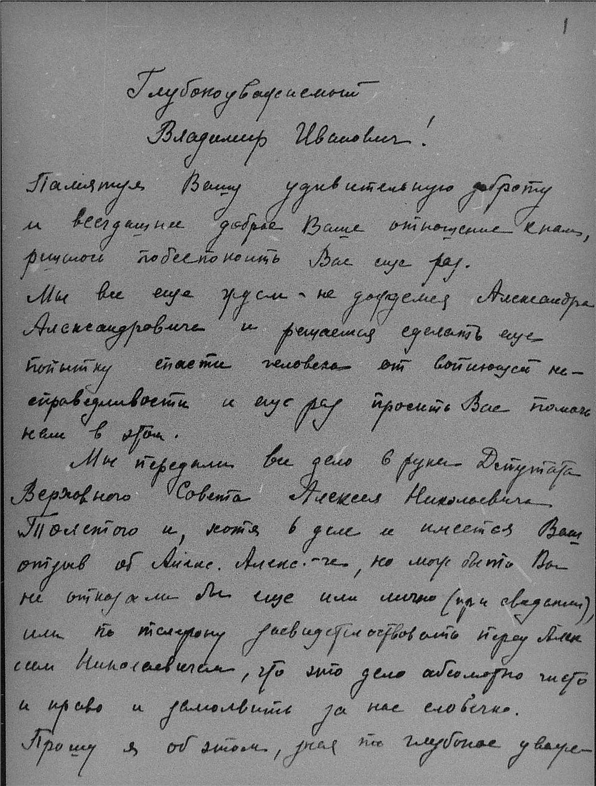 1
Глубокоуважаемый
Владимир Иванович!
Памятуя Вашу удивительную доброту
и всегдашнее доброе Ваше отношение к нам,
решаюсь побеспокоить Вас еще раз.
Мы все еще ждем - не дождемся Александра
Александровича и решаемся сделать еще
попытку спасти человека от вопиющей не-
справедливости и еще раз просить Вас помочь
нам в этом.
Мы передали все дело в руки Депутата
Верховного Совета Алексея Николаевича
Толстого и, хотя в деле и имеется Ваш
отзыв об Алекс. Алекс-че, но может быть Вы
не отказали бы еще или лично (при свидании),
или по телефону засвидетельствовать перед Алек
сеем Николаевичем, что это дело абсолютно чисто
и право и замолвить за нас словечко.
Прошу я об этом, зная то глубокое уваже-